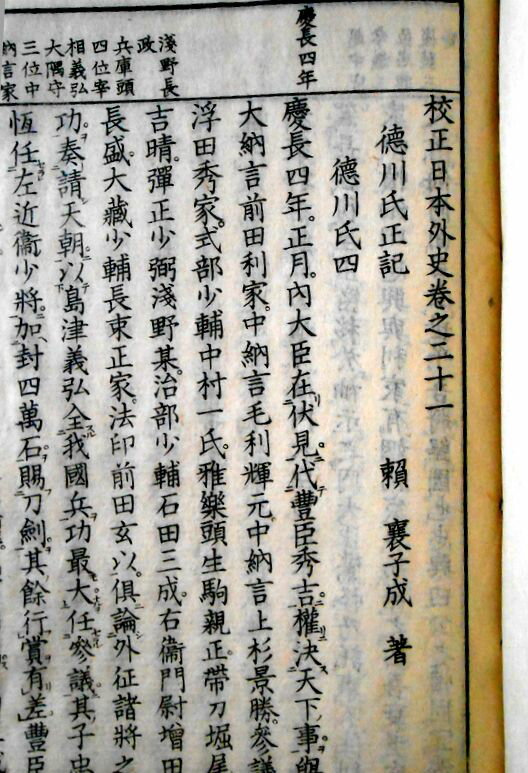 校正日本外史卷之二十一
德川氏正記
賴 襄子成 著
德川氏四
慶長四年
慶長四年。正月。內大臣在伏見。代豐臣秀吉。權決天下事。與
大納言前田利家。中納言毛利輝元。中納言上杉景勝。參議
浮田秀家。式部少輔中村一氏。雅樂頭生駒親正。帶刀堀尾
吉晴。彈正少弼淺野某。治部少輔石田三成。右衞門尉增田
長盛。大藏少輔長束正家。法印前田玄以。俱論外征諸將之
功。奏請天朝。以島津義弘全我國兵。功最大。任參議。其子忠
恆任左近衞少將。加封四萬石。賜刀劍。其餘行賞有差。豐臣
淺野長
政
兵庫頭
四位宰
相義弘
大隅守
三位中
納言家